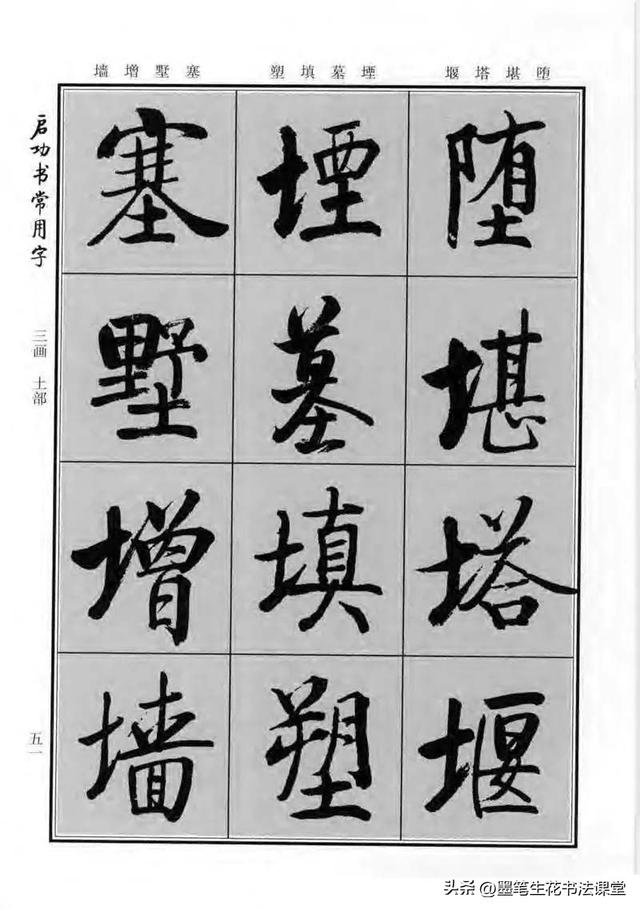 堕堪塔堰 堙墓填塑 塞墅增墙
堕堪塔堰
堙墓填塑
塞墅增墙
启功书常用字
三画 土部
五一
头条 @墨笔生花书法课堂